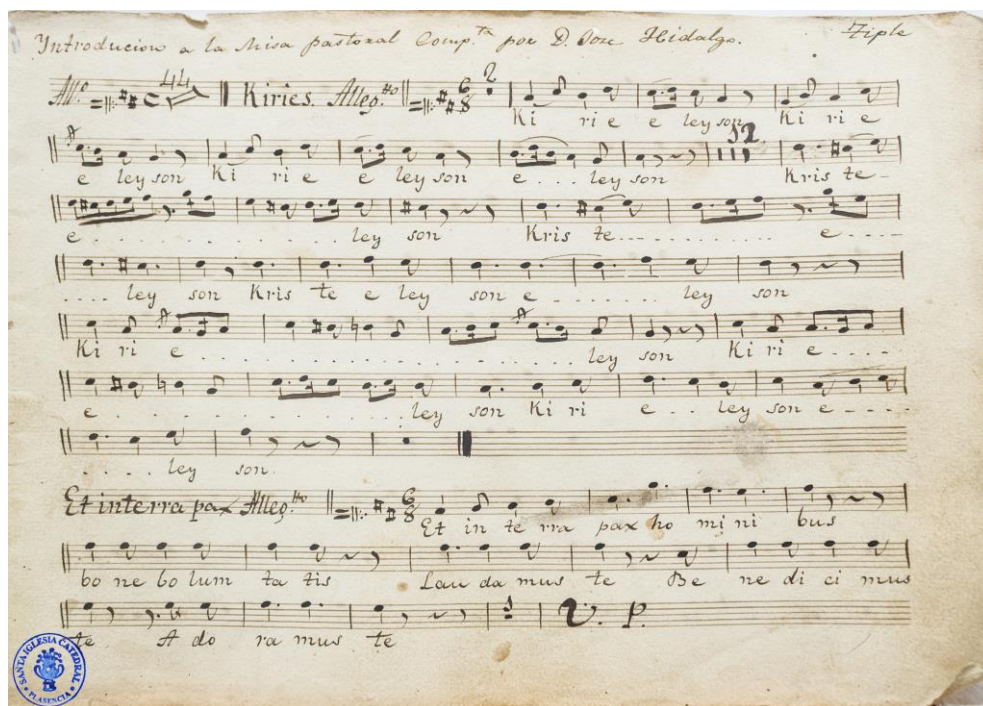 Yntroducion a la Misa pastoral Comp.ta por D. Jose Hidalgo. Tiple
All.o 44 Kiries. Alleg.tto 6 8 2
Ki ri e e ley son Ki ri e
12
e ley son Ki ri e e ley son e . . . ley son Kris te -
e . . . . . . . . . . ley son Kris te - - - . . . . . . . . e - - - -
. . . . ley son Kris te e ley son e . . . . . . ley son
Ki ri e . . . . . . . . . . . . . . . . . . . . ley son Ki ri e - - - -
e . . . . . . . . . . . . . . ley son Ki ri e . . ley son e - - - -
. . . . ley son.
Et interra pax Alleg.tto 6 8
Et in te rra pax ho mi ni bus
bo ne bo lum ta tis Lau da mus te Be ne di ci mus
te A do ra mus te
V. P.
SANTA IGLESIA CATEDRAL
PLASENCIA